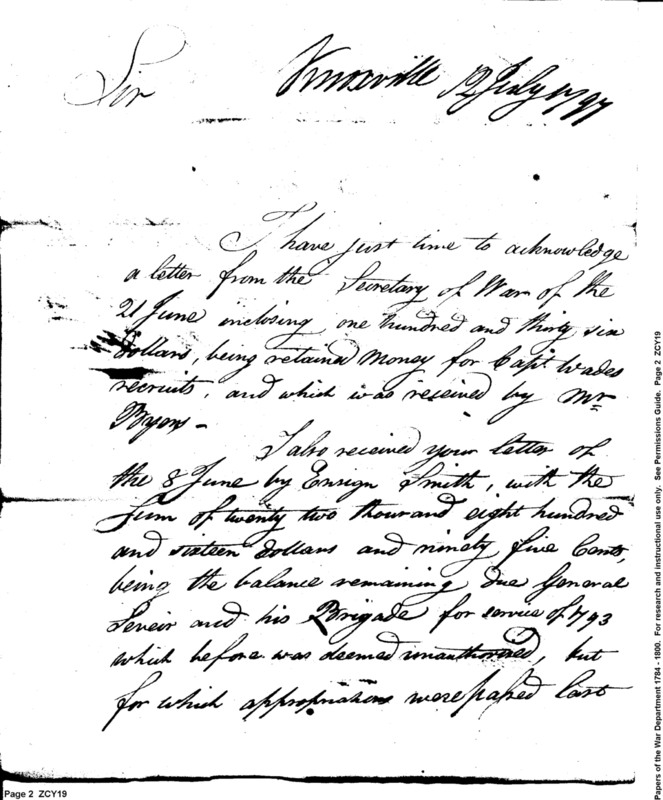 Knoxville 12 July 1797
Sir
I have just time to acknowledge
a letter from the Secretary of War of the
21 June inclosing one hundred and thirty six
dollars, being retained money for Capt. Wades
recruits, and which was received by Mr.
Byers -
I also received your letter of
the 8 June by Ensign Smith, with the
Sum of twenty two thousand eight hundred
and sixteen dollars and ninety five Cents,
being the balance remaining due General
Seveir and his Brigade for service of 1793
which before was deemed unauthorised, but
for which appropriations were passed last
Page 2 ZCY19
Papers of the War Department 1784 - 1800. For research and instructional use only. See Permissions Guide. Page 2 ZCY19